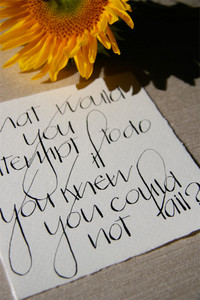 hat would
you
ttempt to do
if
you knew
you could
not fail?